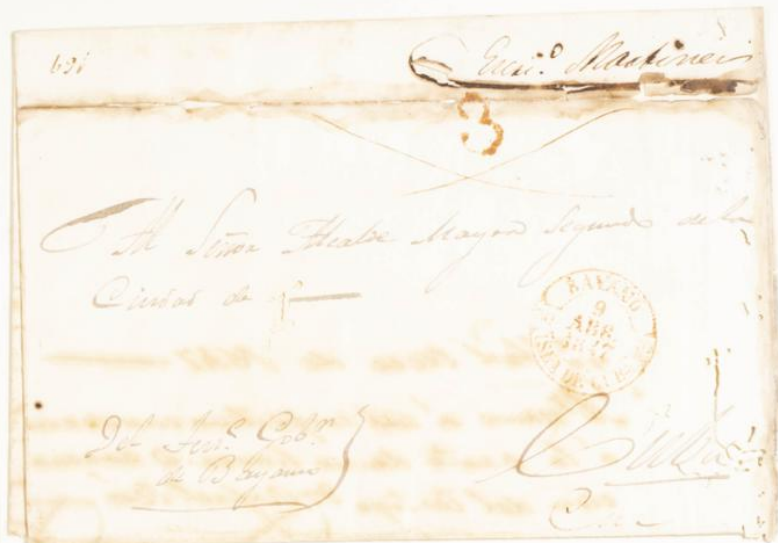 691
Martinez
3
Al Señor Alcalde Mayor Segundo de la
Ciudad de
BAYAMO
9
ABR
ISLA DE CUBA
Del Gobr
de Bayamo
Cuba